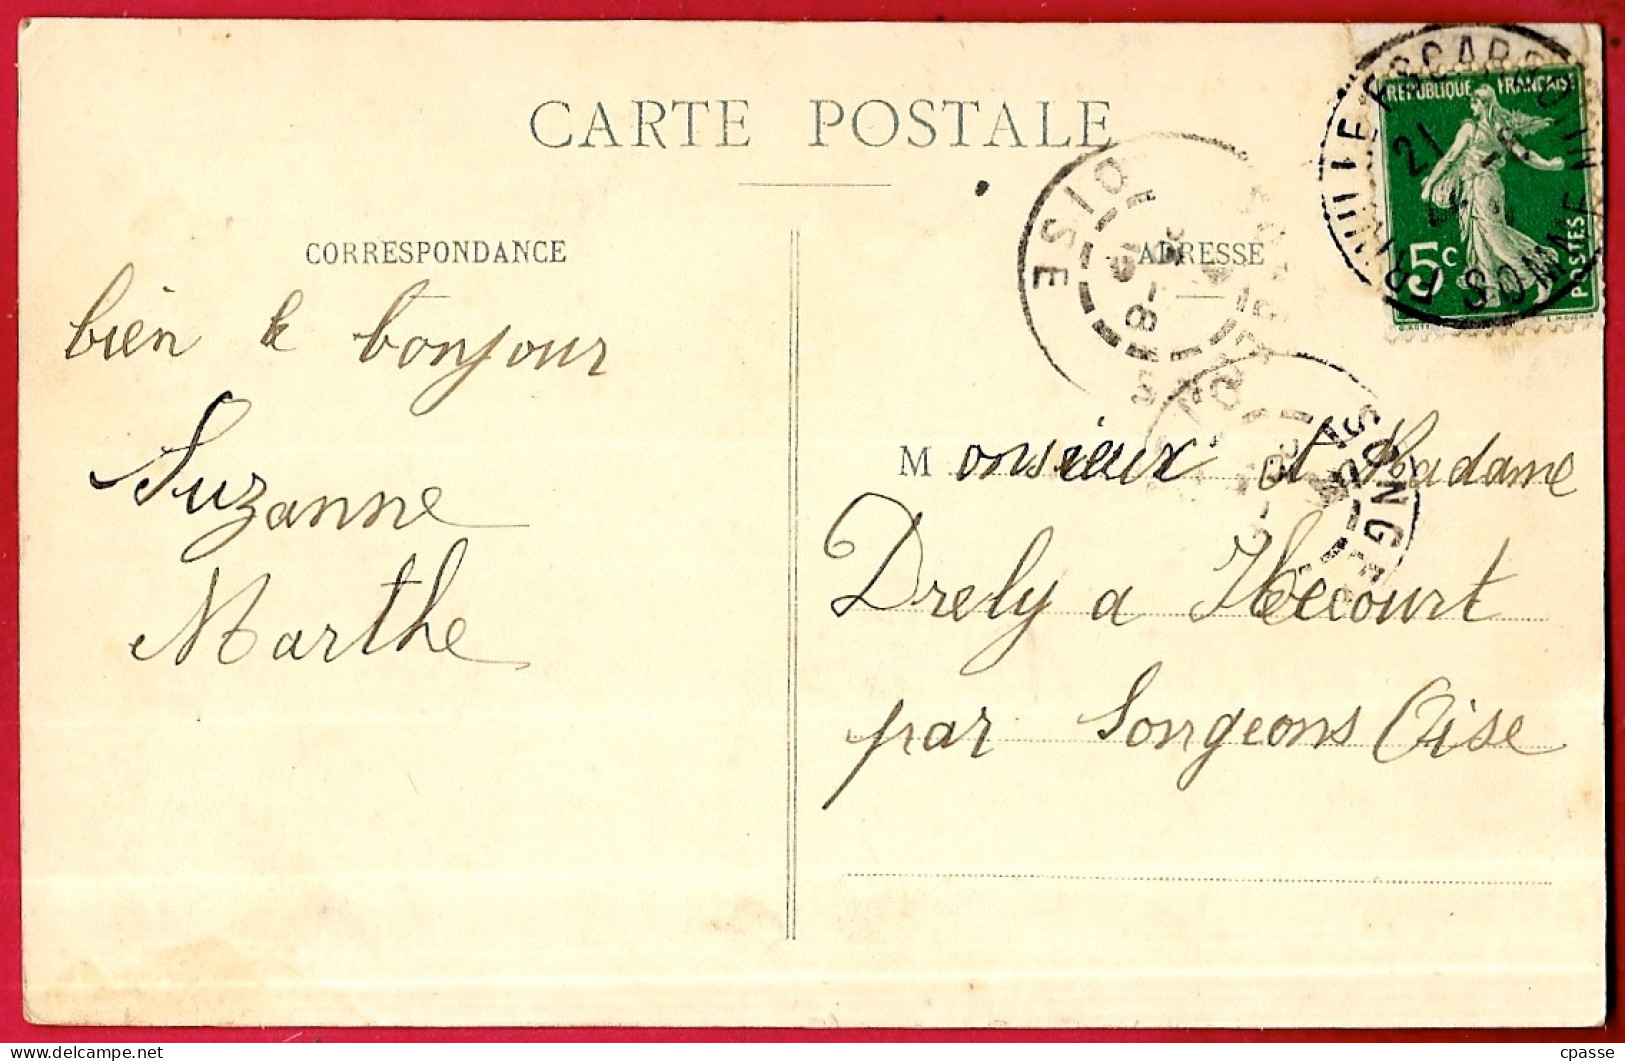 CARTE POSTALE
CORRESPONDANCE
ADRESSE
bien le bonjour
Suzanne
Marthe
Monsieur et Madame
Drely a Hecourt
par Songeons Oise
REPUBLIQUE FRANÇAISE
5c
POSTES
FRIVILLE ESCARBOTIN
SOMME
21
OISE
SONGEONS
OISE
cpasse